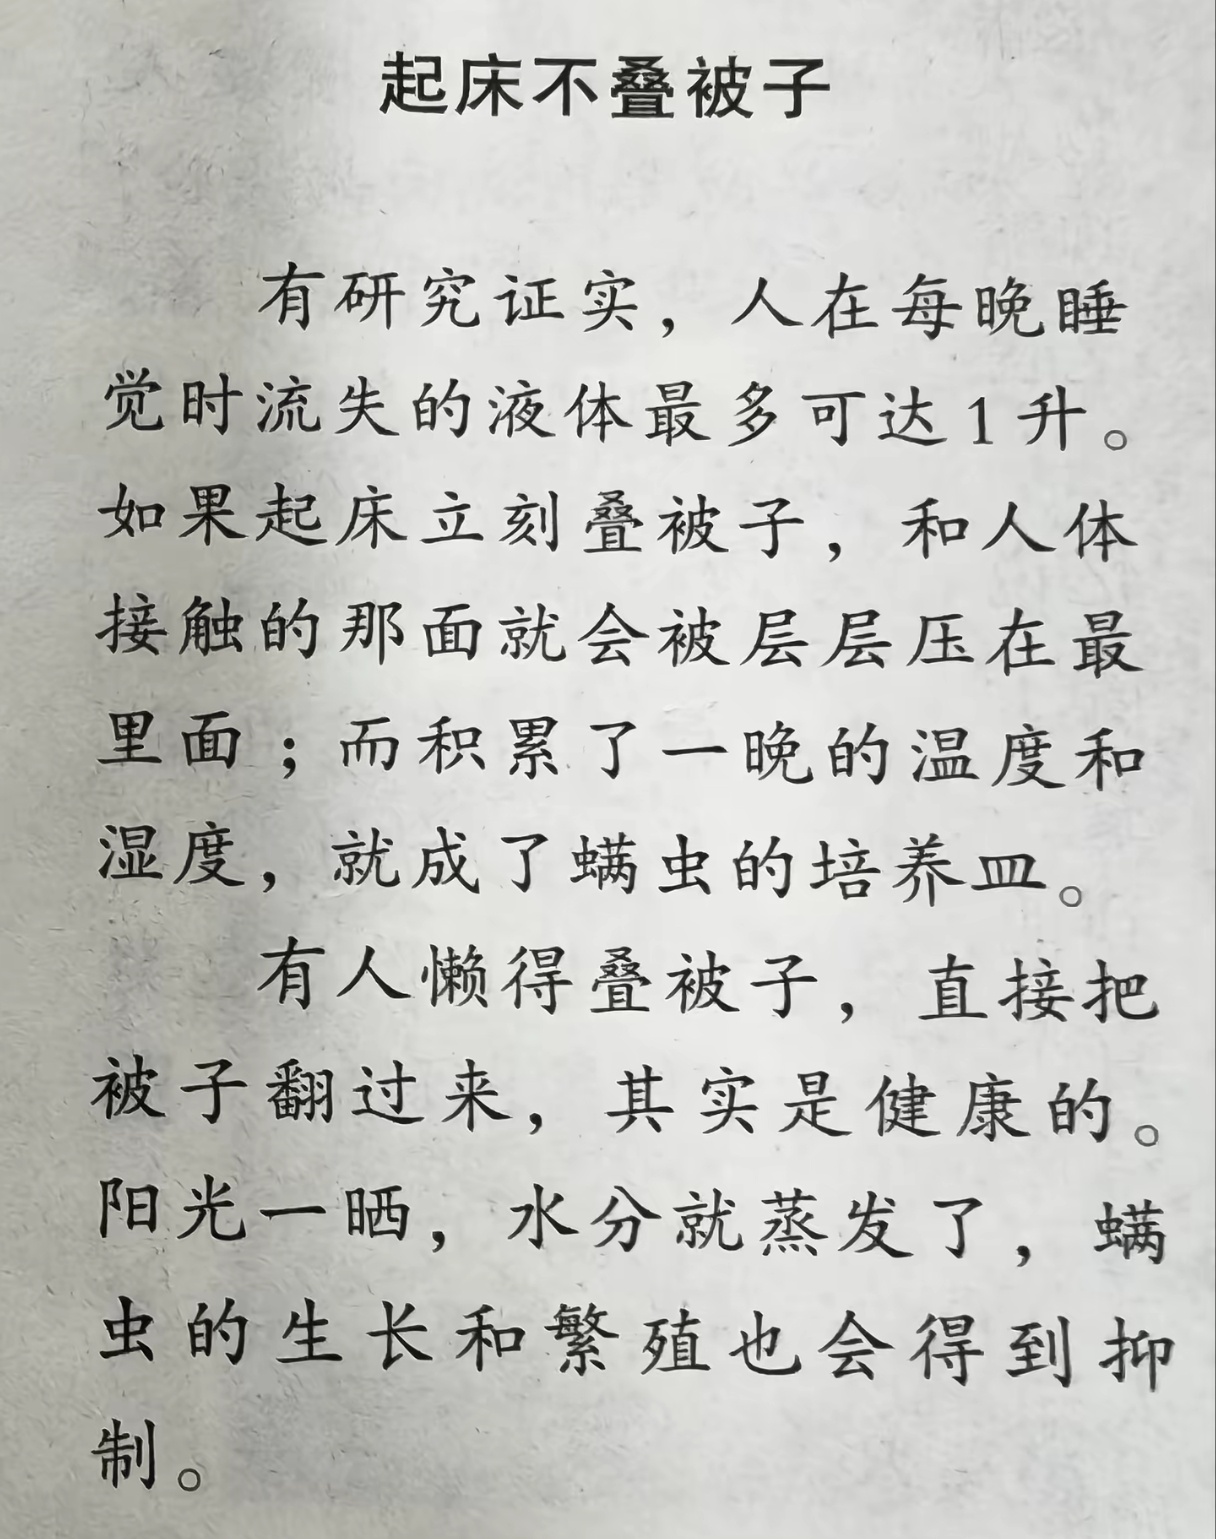 起床不叠被子
有研究证实，人在每晚睡
觉时流失的液体最多可达1升。
如果起床立刻叠被子，和人体
接触的那面就会被层层压在最
里面；而积累了一晚的温度和
湿度，就成了螨虫的培养皿。
有人懒得叠被子，直接把
被子翻过来，其实是健康的。
阳光一晒，水分就蒸发了，螨
虫的生长和繁殖也会得到抑
制。